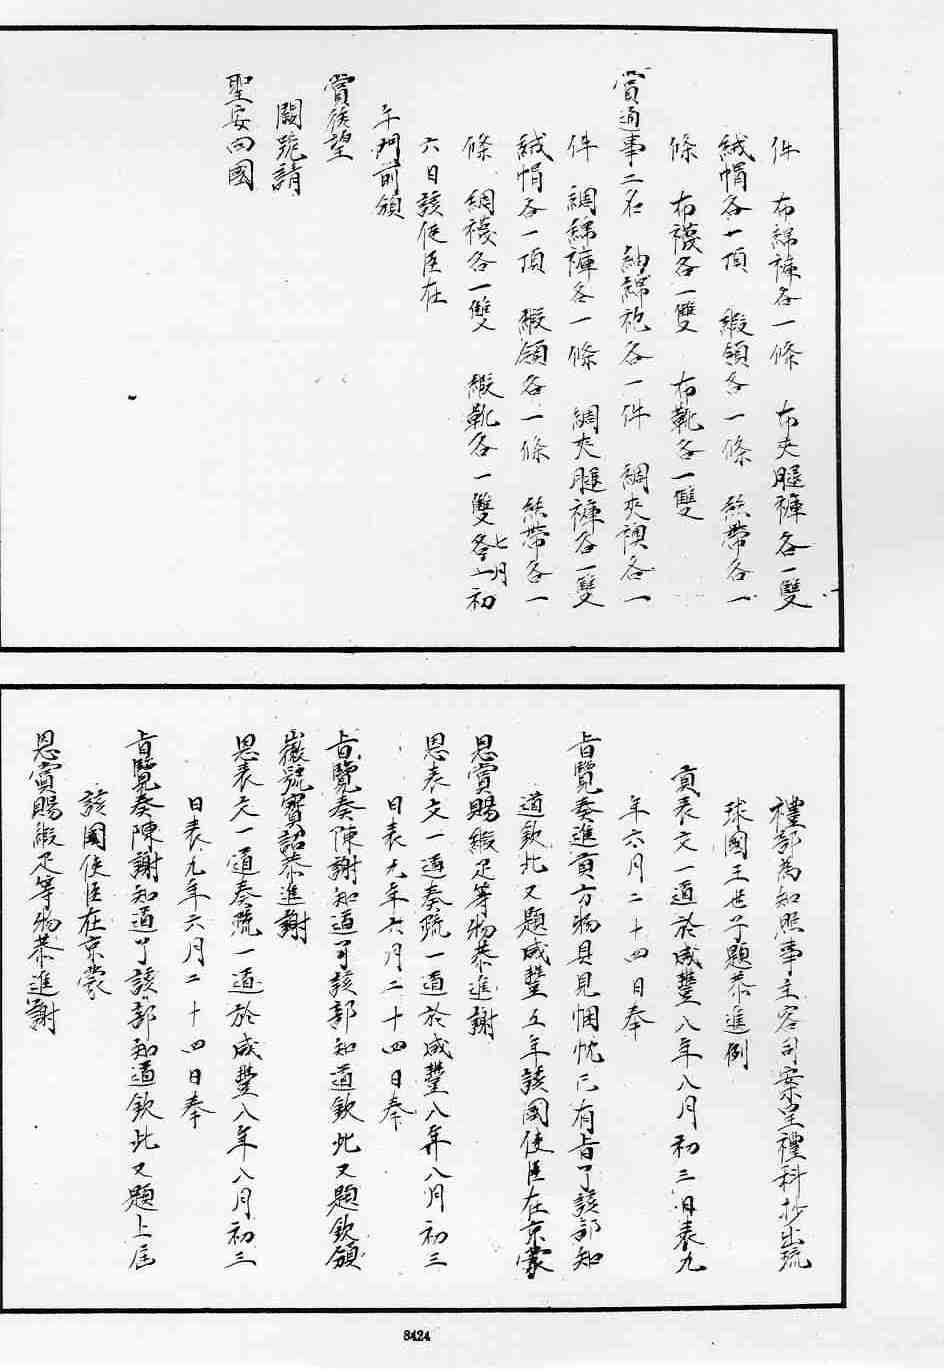 件　布綿褲各一條　布夾腿褲各一雙
絨帽各一頂　緞領各一條　絲帶各一
條　布襪各一雙　布靴各一雙
賞通事二名　紬綿袍各一件　綢夾襖各一
件　綢綿褲各一條　綢夾腿褲各一雙
絨帽各一頂　緞領各一條　絲帶各一
條　綢襪各一雙　緞靴各一雙　七月初
六日該使臣在
午門前頒
賞後望
闕跪請
聖安回國
禮部為知照事主客司案呈禮科抄出琉
球國王世子題恭進例
貢表文一道於咸豐八年八月初三日表九
年六月二十四日奉
旨覽奏進貢方物具見悃忱已有旨了該部知
道欽此又題咸豐五年該國使臣在京蒙
恩賞賜緞疋等物恭進謝
恩表文一道奏疏一道於咸豐八年八月初三
日表九年六月二十四日奉
旨覽奏陳謝知道了該部知道欽此又題欽頒
嶽號寶詔恭進謝
恩表文一道奏疏一道於咸豐八年八月初三
日表九年六月二十四日奉
旨覽奏陳謝知道了該部知道欽此又題上屆
該國使臣在京蒙
恩賞賜緞疋等物恭進謝
8424